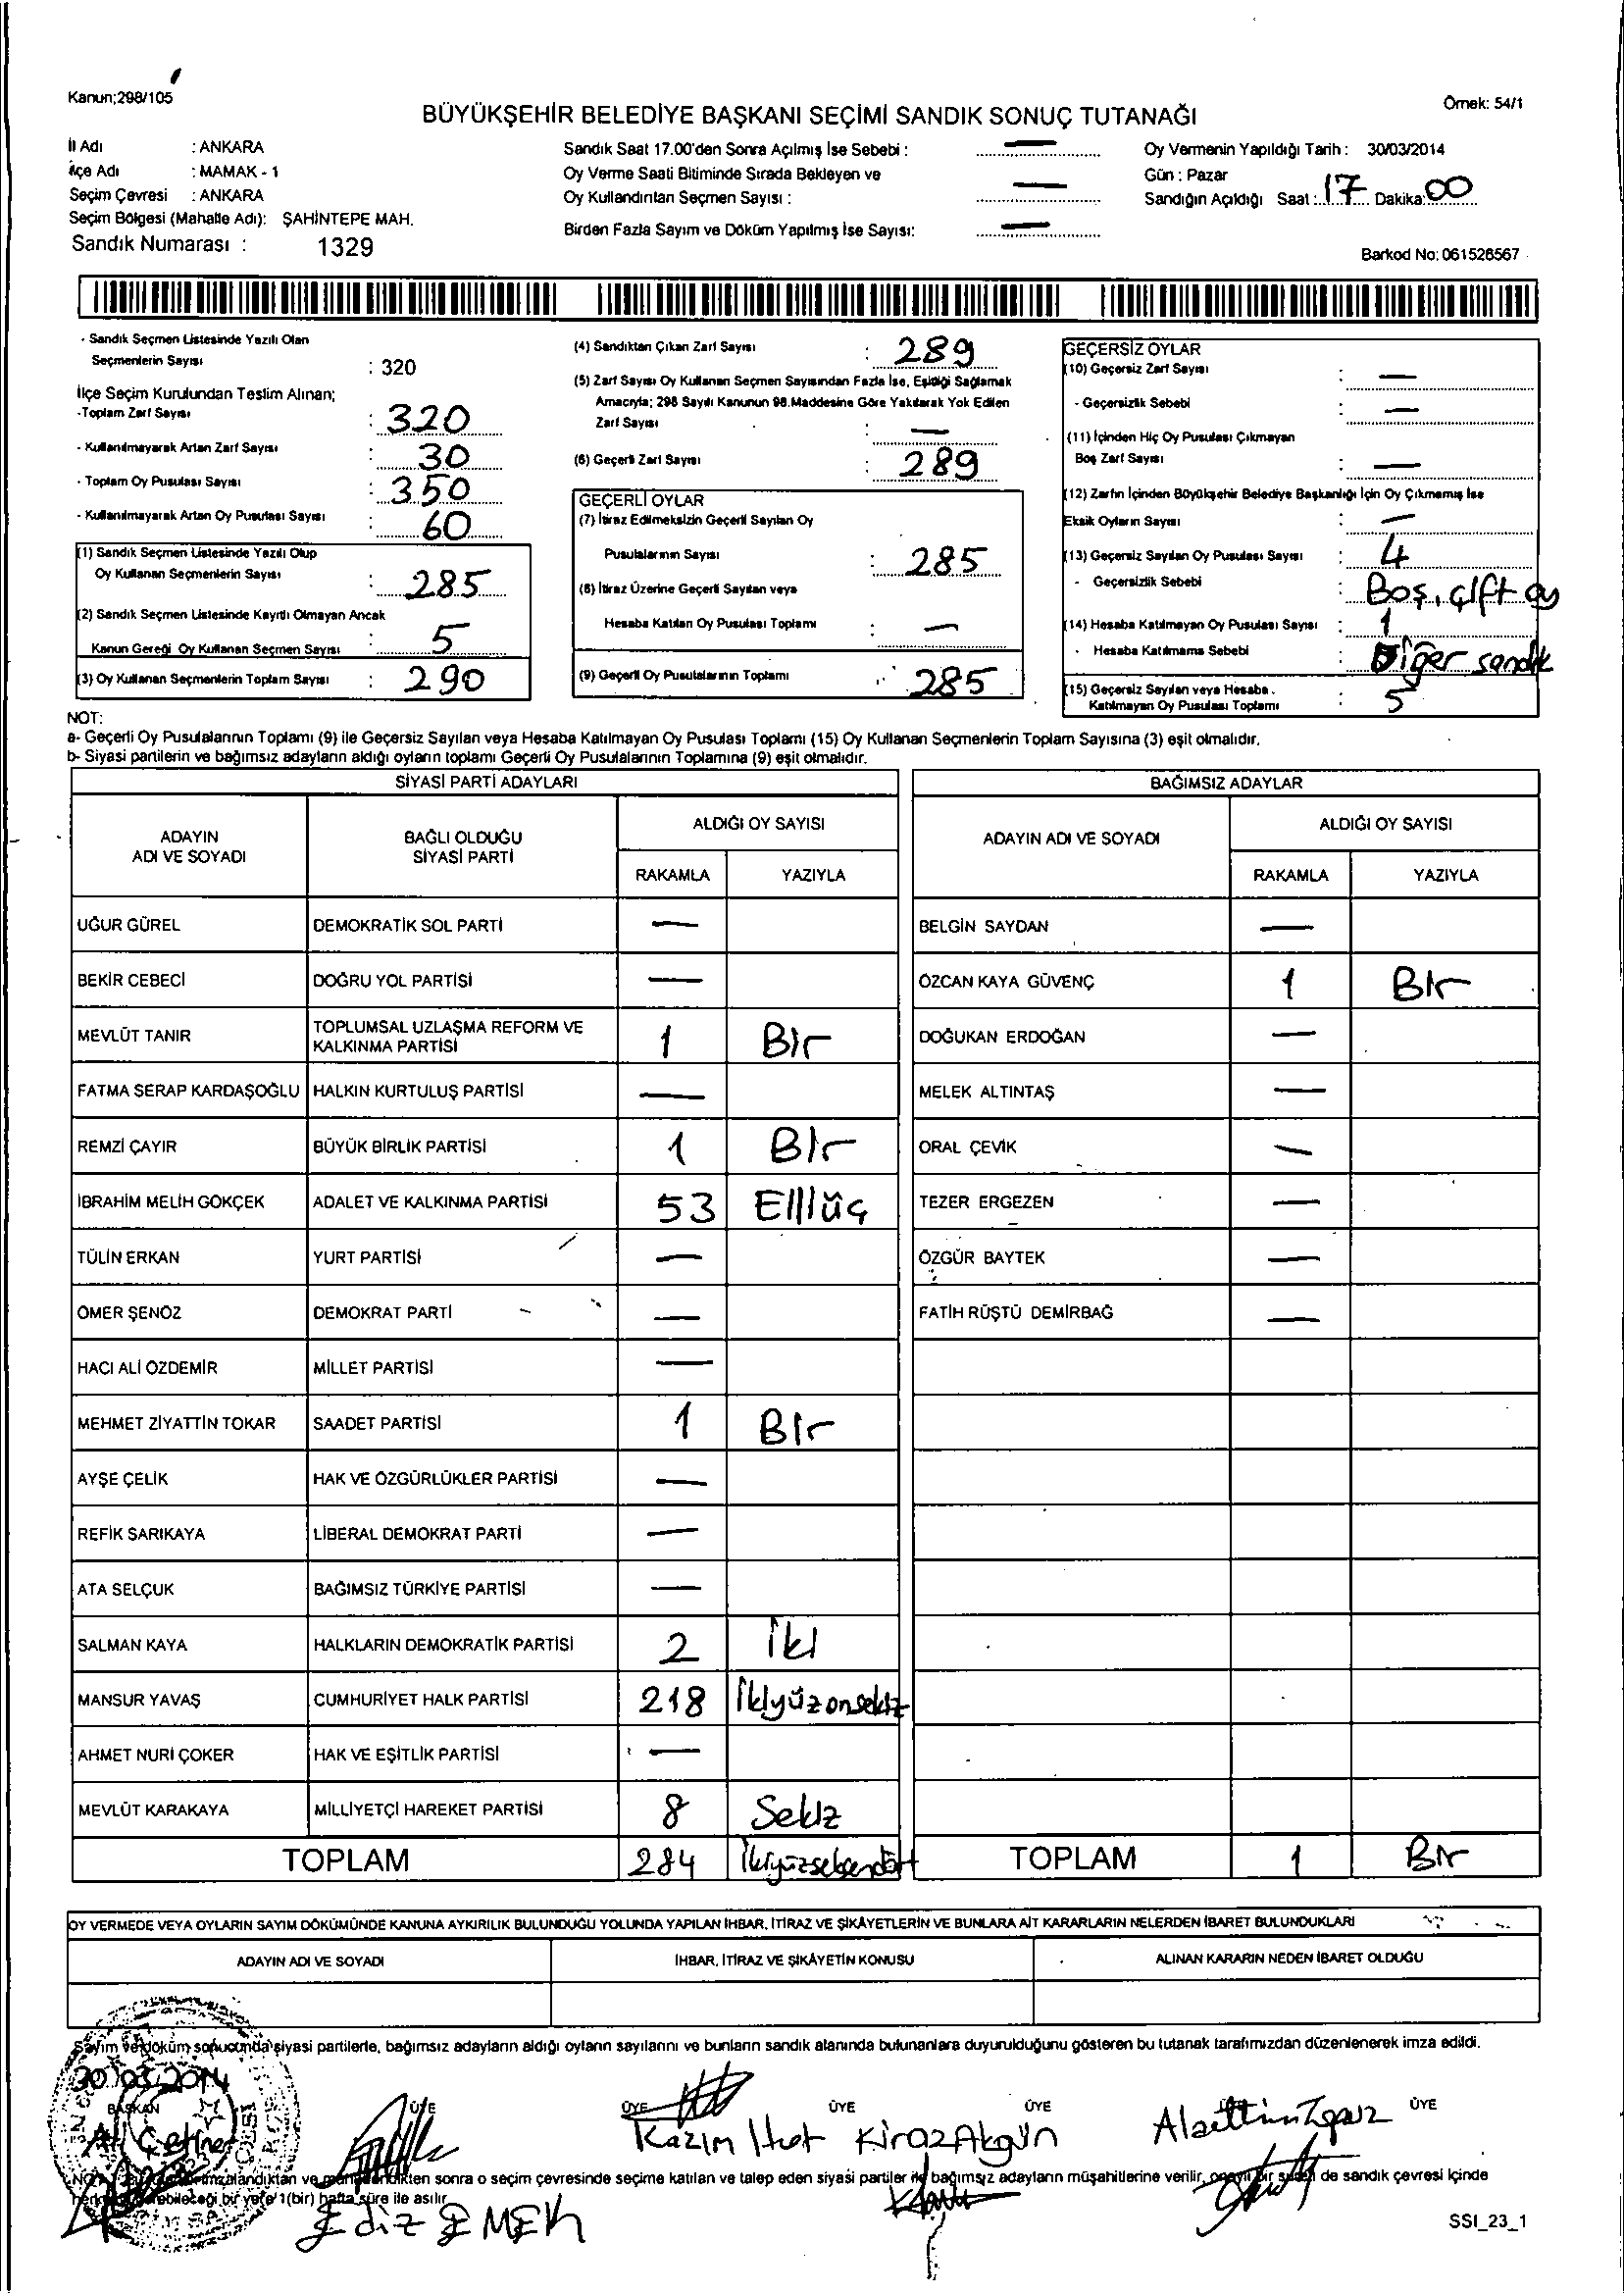 Kanun;298/105
Örnek: 54/1
BÜYÜKŞEHİR BELEDİYE BAŞKANI SEÇİMİ SANDIK SONUÇ TUTANAĞI
İl Adı : ANKARA
İlçe Adı : MAMAK - 1
Seçim Çevresi : ANKARA
Seçim Bölgesi (Mahalle Adı): ŞAHİNTEPE MAH.
Sandık Numarası : 1329
Sandık Saat 17.00'den Sonra Açılmış İse Sebebi : —
Oy Verme Saati Bitiminde Sırada Bekleyen ve
Oy Kullandırılan Seçmen Sayısı : —
Birden Fazla Sayım ve Döküm Yapılmış İse Sayısı: —
Oy Vermenin Yapıldığı Tarih : 30/03/2014
Gün : Pazar
Sandığın Açıldığı Saat : 17 Dakika: 00
Barkod No: 061526567
- Sandık Seçmen Listesinde Yazılı Olan
Seçmenlerin Sayısı : 320
İlçe Seçim Kurulundan Teslim Alınan;
-Toplam Zarf Sayısı : 320
- Kullanılmayarak Artan Zarf Sayısı : 30
- Toplam Oy Pusulası Sayısı : 350
- Kullanılmayarak Artan Oy Pusulası Sayısı : 60
(1) Sandık Seçmen Listesinde Yazılı Olup
Oy Kullanan Seçmenlerin Sayısı : 285
(2) Sandık Seçmen Listesinde Kayıtlı Olmayan Ancak
Kanun Gereği Oy Kullanan Seçmen Sayısı : 5
(3) Oy Kullanan Seçmenlerin Toplam Sayısı : 290
(4) Sandıktan Çıkan Zarf Sayısı : 289
(5) Zarf Sayısı Oy Kullanan Seçmen Sayısından Fazla İse, Eşitliği Sağlamak
Amacıyla; 298 Sayılı Kanunun 98.Maddesine Göre Yakılarak Yok Edilen
Zarf Sayısı : —
(6) Geçerli Zarf Sayısı : 289
GEÇERLİ OYLAR
(7) İtiraz Edilmeksizin Geçerli Sayılan Oy
Pusulalarının Sayısı : 285
(8) İtiraz Üzerine Geçerli Sayılan veya
Hesaba Katılan Oy Pusulası Toplamı : —
(9) Geçerli Oy Pusulalarının Toplamı : 285
GEÇERSİZ OYLAR
(10) Geçersiz Zarf Sayısı : —
- Geçersizlik Sebebi : —
(11) İçinden Hiç Oy Pusulası Çıkmayan
Boş Zarf Sayısı : —
(12) Zarfın İçinden Büyükşehir Belediye Başkanlığı İçin Oy Çıkmamış İse
Eksik Oyların Sayısı : —
(13) Geçersiz Sayılan Oy Pusulası Sayısı : 4
- Geçersizlik Sebebi : Boş, çift oy
(14) Hesaba Katılmayan Oy Pusulası Sayısı : 1
- Hesaba Katılmama Sebebi : Diğer sandık
(15) Geçersiz Sayılan veya Hesaba
Katılmayan Oy Pusulası Toplamı : 5
NOT:
a- Geçerli Oy Pusulalarının Toplamı (9) ile Geçersiz Sayılan veya Hesaba Katılmayan Oy Pusulası Toplamı (15) Oy Kullanan Seçmenlerin Toplam Sayısına (3) eşit olmalıdır.
b- Siyasi partilerin ve bağımsız adayların aldığı oyların toplamı Geçerli Oy Pusulalarının Toplamına (9) eşit olmalıdır.
SİYASİ PARTİ ADAYLARI
ADAYIN ADI VE SOYADI BAĞLI OLDUĞU SİYASİ PARTİ ALDIĞI OY SAYISI
RAKAMLA YAZIYLA
UĞUR GÜREL DEMOKRATİK SOL PARTİ —
BEKİR CEBECİ DOĞRU YOL PARTİSİ —
MEVLÜT TANIR TOPLUMSAL UZLAŞMA REFORM VE KALKINMA PARTİSİ 1 Bir
FATMA SERAP KARDAŞOĞLU HALKIN KURTULUŞ PARTİSİ —
REMZİ ÇAYIR BÜYÜK BİRLİK PARTİSİ 1 Bir
İBRAHİM MELİH GÖKÇEK ADALET VE KALKINMA PARTİSİ 53 Elliüç
TÜLİN ERKAN YURT PARTİSİ —
ÖMER ŞENÖZ DEMOKRAT PARTİ —
HACI ALİ ÖZDEMİR MİLLET PARTİSİ —
MEHMET ZİYATTİN TOKAR SAADET PARTİSİ 1 Bir
AYŞE ÇELİK HAK VE ÖZGÜRLÜKLER PARTİSİ —
REFİK SARIKAYA LİBERAL DEMOKRAT PARTİ —
ATA SELÇUK BAĞIMSIZ TÜRKİYE PARTİSİ —
SALMAN KAYA HALKLARIN DEMOKRATİK PARTİSİ 2 İki
MANSUR YAVAŞ CUMHURİYET HALK PARTİSİ 218 İkiyüzonsekiz
AHMET NURİ ÇOKER HAK VE EŞİTLİK PARTİSİ —
MEVLÜT KARAKAYA MİLLİYETÇİ HAREKET PARTİSİ 8 Sekiz
TOPLAM 284 İkiyüzseksendört
BAĞIMSIZ ADAYLAR
ADAYIN ADI VE SOYADI ALDIĞI OY SAYISI
RAKAMLA YAZIYLA
BELGİN SAYDAN —
ÖZCAN KAYA GÜVENÇ 1 Bir
DOĞUKAN ERDOĞAN —
MELEK ALTINTAŞ —
ORAL ÇEVİK —
TEZER ERGEZEN —
ÖZGÜR BAYTEK —
FATİH RÜŞTÜ DEMİRBAĞ —
TOPLAM 1 Bir
OY VERMEDE VEYA OYLARIN SAYIM DÖKÜMÜNDE KANUNA AYKIRILIK BULUNDUĞU YOLUNDA YAPILAN İHBAR, İTİRAZ VE ŞİKÂYETLERİN VE BUNLARA AİT KARARLARIN NELERDEN İBARET BULUNDUKLARI
ADAYIN ADI VE SOYADI İHBAR, İTİRAZ VE ŞİKÂYETİN KONUSU ALINAN KARARIN NEDEN İBARET OLDUĞU
Sayım ve döküm sonucunda siyasi partilerle, bağımsız adayların aldığı oyların sayılarını ve bunların sandık alanında bulunanlara duyurulduğunu gösteren bu tutanak tarafımızdan düzenlenerek imza edildi.
30.03.2014
BAŞKAN ÜYE ÜYE ÜYE ÜYE ÜYE
Ali Çetiner Kazım Kiraz Akgün Alaettin
sonra o seçim çevresinde seçime katılan ve talep eden siyasi partiler ile bağımsız adayların müşahitlerine verilir, onaylı bir sureti de sandık çevresi içinde
bir yere 1(bir) hafta süre ile asılır.
Ediz EMEK
SSI_23_1